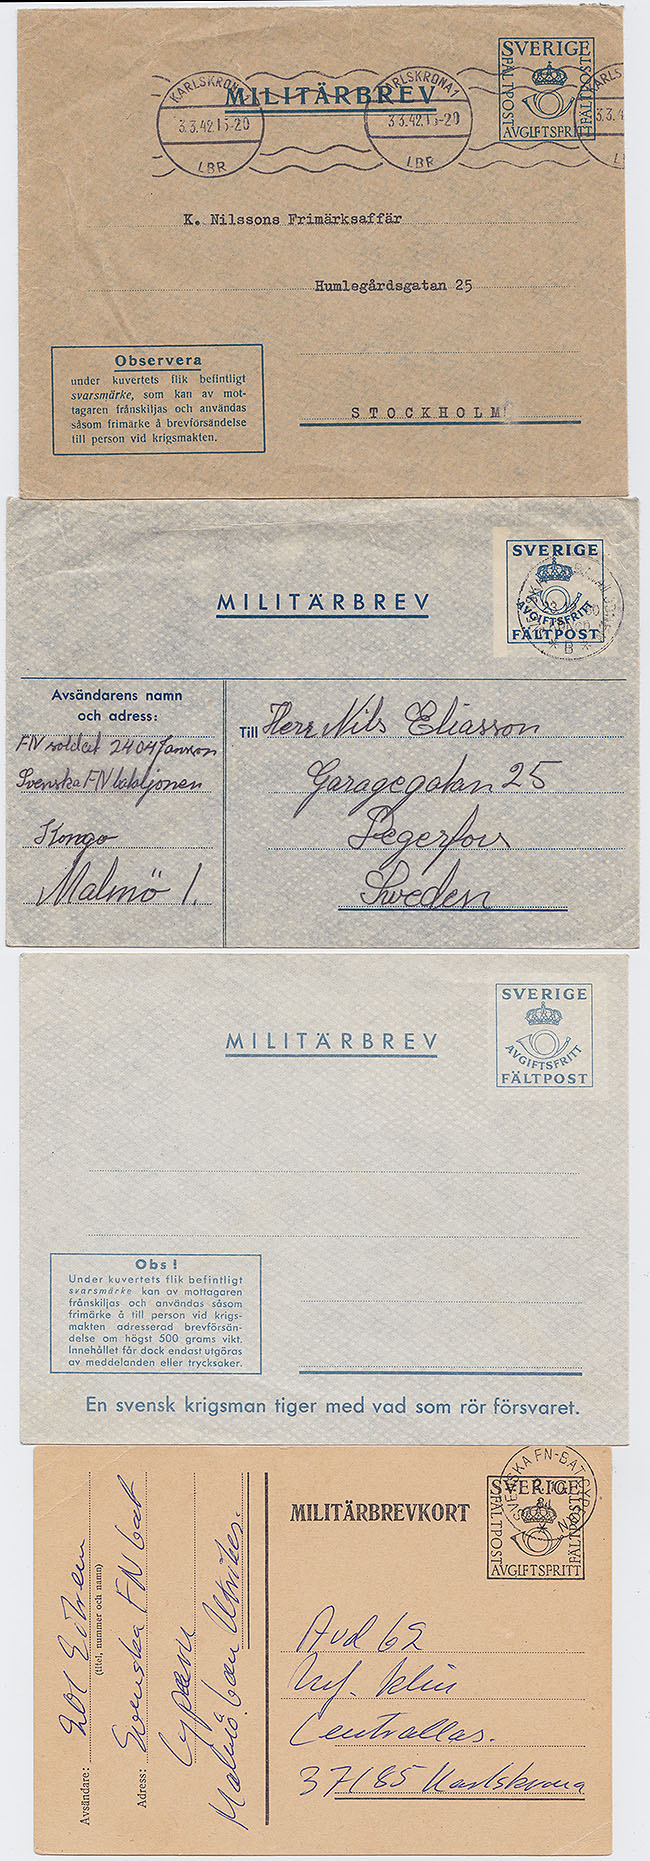 KARLSKRONA
3.3.42.15-20
LBR
MILITÄRBREV
KARLSKRONA 1
3.3.42.15-20
LBR
SVERIGE
FÄLTPOST
FÄLTPOST
AVGIFTSFRITT
KARLS
3.3.4
K. Nilssons Frimärksaffär
Humlegårdsgatan 25
STOCKHOLM
Observera
under kuvertets flik befintligt
svarsmärke, som kan av mot-
tagaren frånskiljas och användas
såsom frimärke å brevförsändelse
till person vid krigsmakten.
MILITÄRBREV
SVERIGE
AVGIFTSFRITT
FÄLTPOST
B
Avsändarens namn
och adress:
FN soldat 2404 Jansson
Svenska FN bataljonen
Kongo
Malmö 1.
Till Herr Nils Eliasson
Garagegatan 25
Degerfors
Sweden
MILITÄRBREV
SVERIGE
AVGIFTSFRITT
FÄLTPOST
Obs!
Under kuvertets flik befintligt
svarsmärke kan av mottagaren
frånskiljas och användas såsom
frimärke å till person vid krigs-
makten adresserad brevförsän-
delse om högst 500 grams vikt.
Innehållet får dock endast utgöras
av meddelanden eller trycksaker.
En svensk krigsman tiger med vad som rör försvaret.
MILITÄRBREVKORT
SVENSKA FN-BAT
SVERIGE
FÄLTPOST
FÄLTPOST
AVGIFTSFRITT
Avsändare:
(titel, nummer och namn)
Adress: Svenska FN bat
Cypern
Malmö ban Utrikes.
Avd 62
Centrallas.
37185 Karlskrona